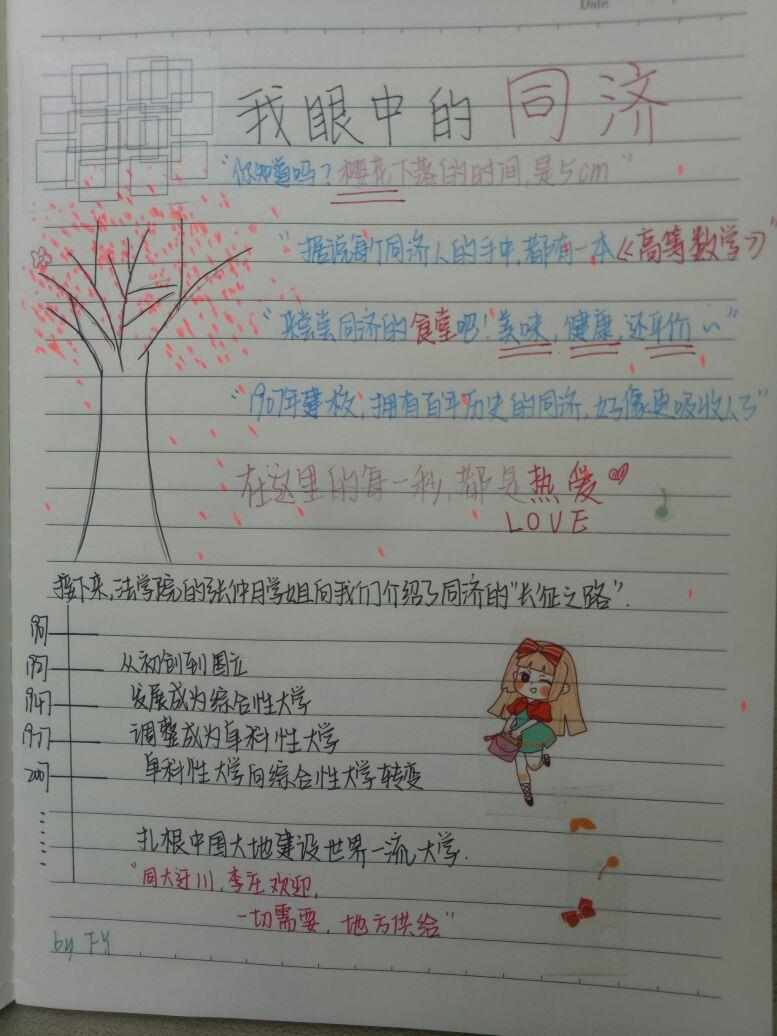 Date
我眼中的同济
"你知道吗？樱花下落的时间，是5cm"
"据说每个同济人的手中，都有一本《高等数学》"
"来尝尝同济的食堂吧！美味，健康，还平价~"
"1907年建校，拥有百年历史的同济，好像更吸收人了"
在这里的每一秒，都是热爱
LOVE
接下来，法学院的张仲月学姐向我们介绍了同济的"长征之路".
1907
1927 从初创到国立
1947 发展成为综合性大学
1977 调整成为单科性大学
2007 单科性大学向综合性大学转变
扎根中国大地建设世界一流大学.
"同大迁川，李庄欢迎，
一切需要，地方供给"
by